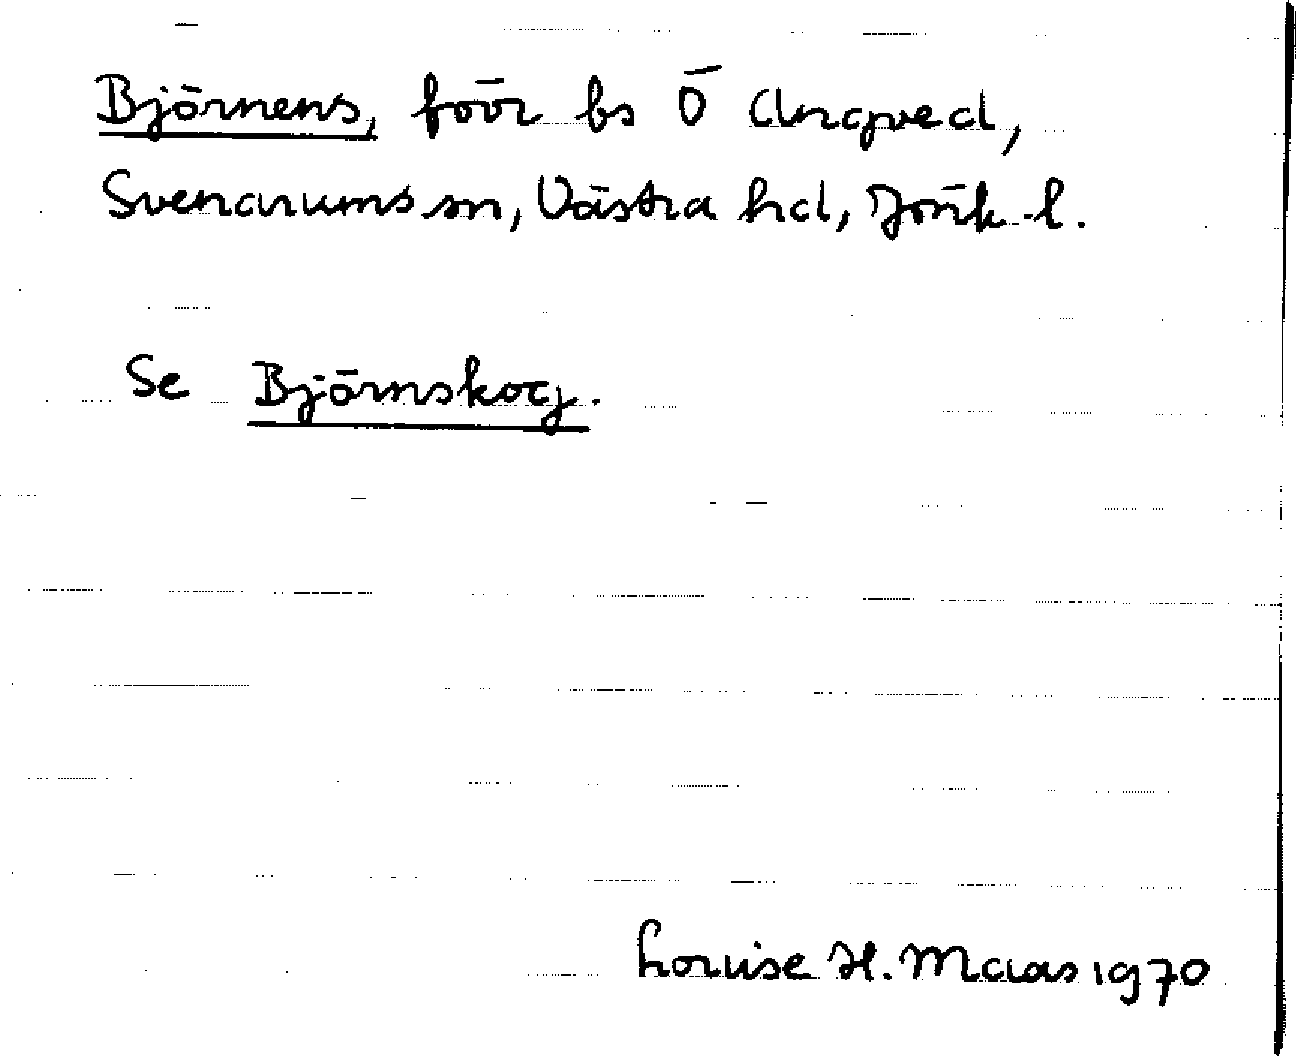 Björnens, förr bs Ö Angqved,
Svenarums sn, Västra hd, Jönk. l.
Se Björnskog.
Louise H. Maas 1970